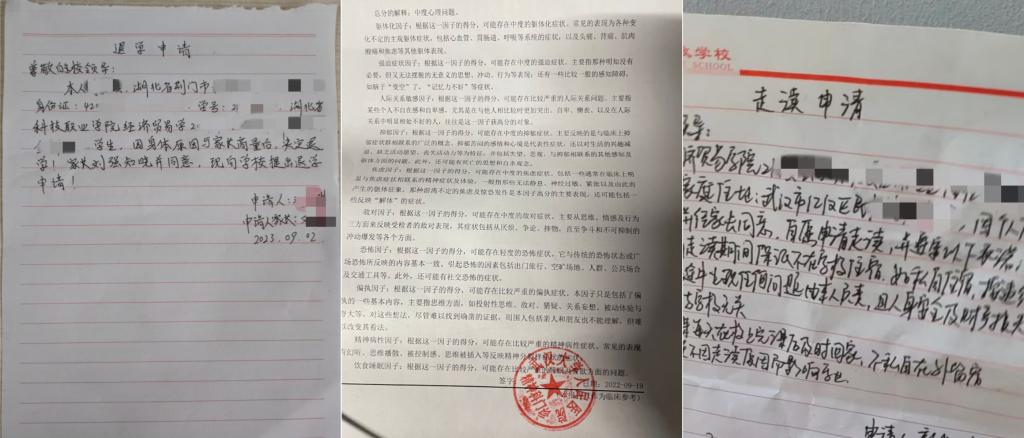 退学申请
尊敬的校领导:
本人 湖北省荆门市
身份证:42 学号:2 湖北省
科技职业学院经济贸易学2
学生,因身体原因与家长商量后,决定退
学!家长刘强知晓并同意,现向学校提出退学
申请!
申请人:
申请人家长:
2023.09.02
总分的解释:中度心理问题。
躯体化因子:根据这一因子的得分,可能存在中度的躯体化症状。常见的表现为各种变
化不定的主观躯体症状,包括心血管、胃肠道、呼吸等系统的症状,以及头痛、背痛、肌肉
酸痛和焦虑等其他躯体表现。
强迫症状因子:根据这一因子的得分,可能存在中度的强迫症状。主要指那种明知没有
必要,但又无法摆脱的无意义的思想、冲动、行为等表现;还有一些比较一般的感知障碍,
如脑子“变空”了,“记忆力不好”等症状。
人际关系敏感因子:根据这一因子的得分,可能存在比较严重的人际关系问题。主要指
某些个人不自在感和自卑感,尤其是在与他人相比较时更加突出。自卑、懊丧、以及在人际
关系中明显相处不好的人,往往是这一因子获高分的对象。
抑郁因子:根据这一因子的得分,可能存在中度的抑郁症状。主要反映的是与临床上抑
郁症状群相联系的广泛的概念。抑郁苦闷的感情和心境是代表性症状,还以对生活的兴趣减
退、缺乏活动愿望、丧失活动力等为特征,并包括失望、悲观、与抑郁相联系的其他感知及
躯体方面的问题。此外,还可能有死亡的思想和自杀观念。
焦虑因子:根据这一因子的得分,可能存在比较严重的焦虑症状,包括一些通常在临床上明
显与焦虑症状相联系的精神症状及体验。一般指那些无法静息、神经过敏、紧张以及由此而
产生的躯体征象,那种游离不定的焦虑及惊恐发作是本因子高分的主要表现,还可能包括一
些反映“解体”的症状。
敌对因子:根据这一因子的得分,可能存在中度的敌对症状。主要从思维、情感及行为
三方面来反映受检者的敌对表现,其症状包括从厌烦、争论、摔物,直至争斗和不可抑制的
冲动爆发等各个方面。
恐怖因子:根据这一因子的得分,可能存在轻度的恐怖症状。它与传统的恐怖状态或广
场恐怖所反映的内容基本一致,引起恐怖的因素包括出门旅行、空旷场地、人群、公共场合
及交通工具等。此外,还可能有社交恐怖的症状。
偏执因子:根据这一因子的得分,可能存在比较严重的偏执症状。本因子只是包括了偏
执的一些基本内容,主要指思维方面,如投射性思维、敌对、猜疑、关系妄想、被动体验与
夸大等。对这些想法,尽管难以找到确凿的证据,周围人包括亲人和朋友也不能理解,但难
以改变其看法。
精神病性因子:根据这一因子的得分,可能存在比较严重的精神病性症状。常见的表现
有幻听、思维播散、被控制感、思维被插入等反映精神分裂样症状的症状。
饮食睡眠因子:根据这一因子的得分,可能存在比较严重的睡眠及饮食方面的问题。
签字 日期:2022-09-19
作为临床参考)
学校
SCHOOL
走读申请
导:
济贸易学院21
家庭住址:武汉市江汉区民
因个人
前征家长同意,自愿申请走读,并遵守以下承诺,
走读期间除议不在学校住宿,如私自住宿,
途中出现任何问题由本人负责,且人身安全及财产损失
与学校无关
每天在校上完课后及时回家,不私自在外留宿
不因走读原因而影响学业
申请人